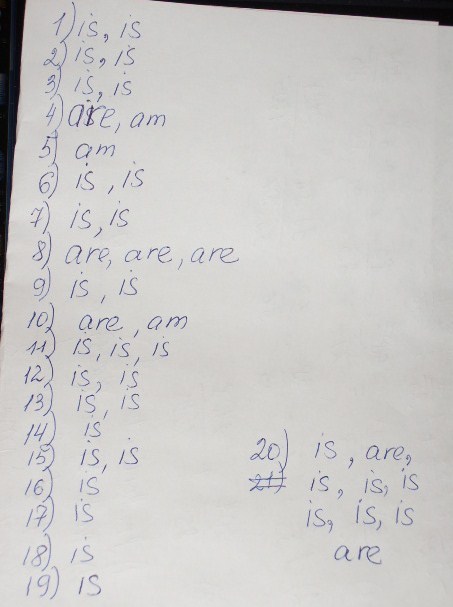 1) is, is
2) is, is
3) is, is
4) are, am
5) am
6) is, is
7) is, is
8) are, are, are
9) is, is
10) are, am
11) is, is, is
12) is, is
13) is, is
14) is
15) is, is
16) is
17) is
18) is
19) is
20) is, are,
21) is, is, is
is, is, is
are